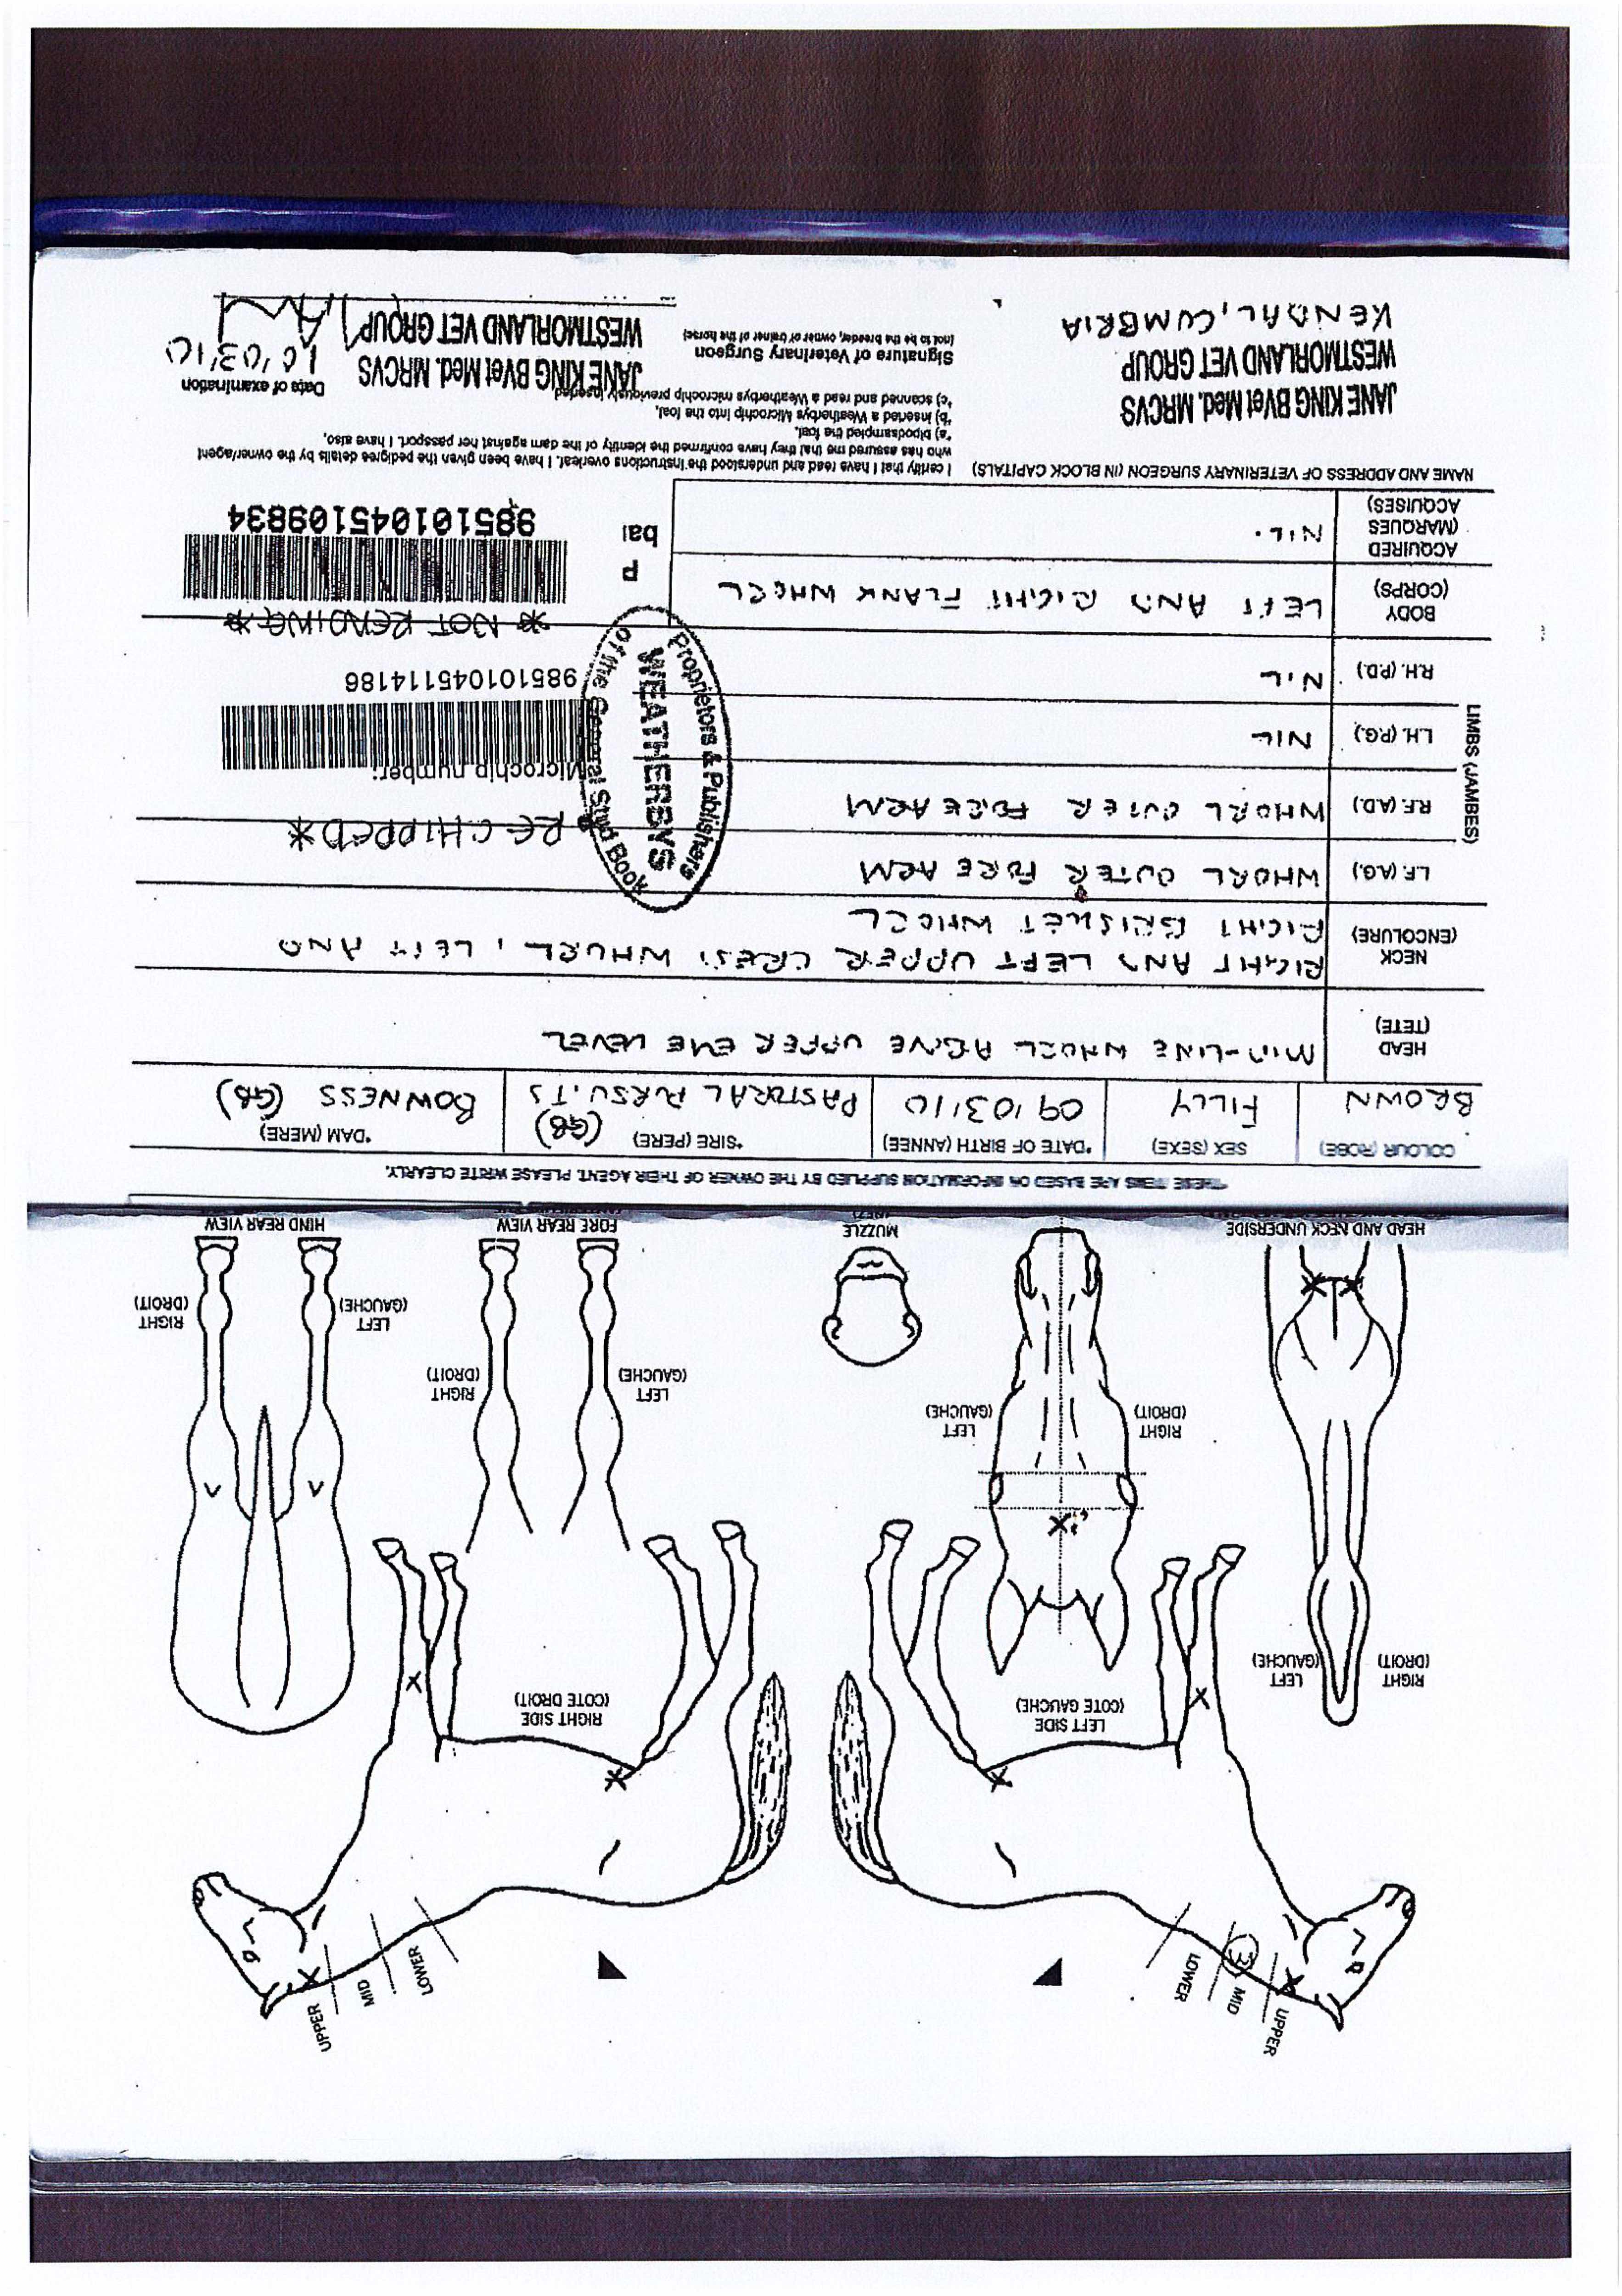 UPPER
MID
LOWER
UPPER
MID
LOWER
LEFT SIDE
(COTE GAUCHE)
RIGHT SIDE
(COTE DROIT)
RIGHT
(DROIT)
LEFT
(GAUCHE)
RIGHT
(DROIT)
LEFT
(GAUCHE)
LEFT
(GAUCHE)
RIGHT
(DROIT)
LEFT
(GAUCHE)
RIGHT
(DROIT)
HEAD AND NECK UNDERSIDE
MUZZLE
FORE REAR VIEW
HIND REAR VIEW
*THESE ITEMS ARE BASED ON INFORMATION SUPPLIED BY THE OWNER OF THEIR AGENT. PLEASE WRITE CLEARLY.
COLOUR (ROBE) SEX (SEXE) *DATE OF BIRTH (ANNEE) *SIRE (PERE) (GB) *DAM (MERE)
BROWN FILLY 09/03/10 PASTORAL PURSUITS BOWNESS (GB)
HEAD
(TETE)
MID-LINE WHORL ABOVE UPPER EYE LEVEL
NECK
(ENCOLURE)
RIGHT AND LEFT UPPER CREST WHORL, LEFT AND
RIGHT BRISKET WHORL
LIMBS (JAMBES)
L.F. (A.G.) WHORL OUTER FORE ARM
R.F. (A.D.) WHORL OUTER FORE ARM
L.H. (P.G.) NIL
R.H. (P.D.) NIL
BODY
(CORPS)
LEFT AND RIGHT FLANK WHORL
ACQUIRED
(MARQUES
ACQUISES)
NIL.
RE-CHIPPED *
Microchip number:
985101045114186
* NOT READING *
P
bar
985101045109834
Proprietors & Publishers
WEATHERBYS
of the General Stud Book
NAME AND ADDRESS OF VETERINARY SURGEON (IN BLOCK CAPITALS)
JANE KING BVet Med. MRCVS
WESTMORLAND VET GROUP
KENDAL, CUMBRIA
I certify that I have read and understood the instructions overleaf. I have been given the pedigree details by the owner/agent
who has assured me that they have confirmed the identity of the dam against her passport. I have also,
*a) bloodsampled the foal.
*b) inserted a Weatherbys Microchip into the foal.
*c) scanned and read a Weatherbys microchip previously inserted
Signature of Veterinary Surgeon
(not to be the breeder, owner or trainer of the horse)
JANE KING BVet Med. MRCVS
WESTMORLAND VET GROUP
Date of examination
10/03/10